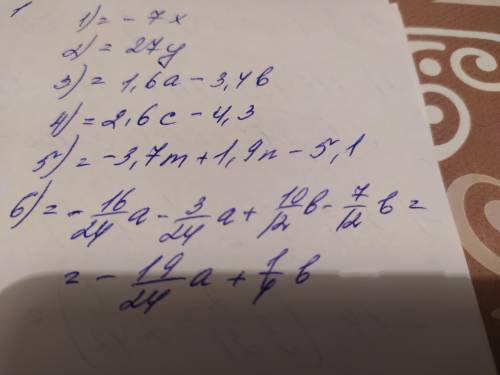 1
1) = -7x
2) = 27y
3) = 1,6a - 3,4b
4) = 2,6c - 4,3
5) = -3,7m + 1,9n - 5,1
6) = -16/24 a - 3/24 a + 10/12 b - 7/12 b =
= -19/24 a + 1/4 b